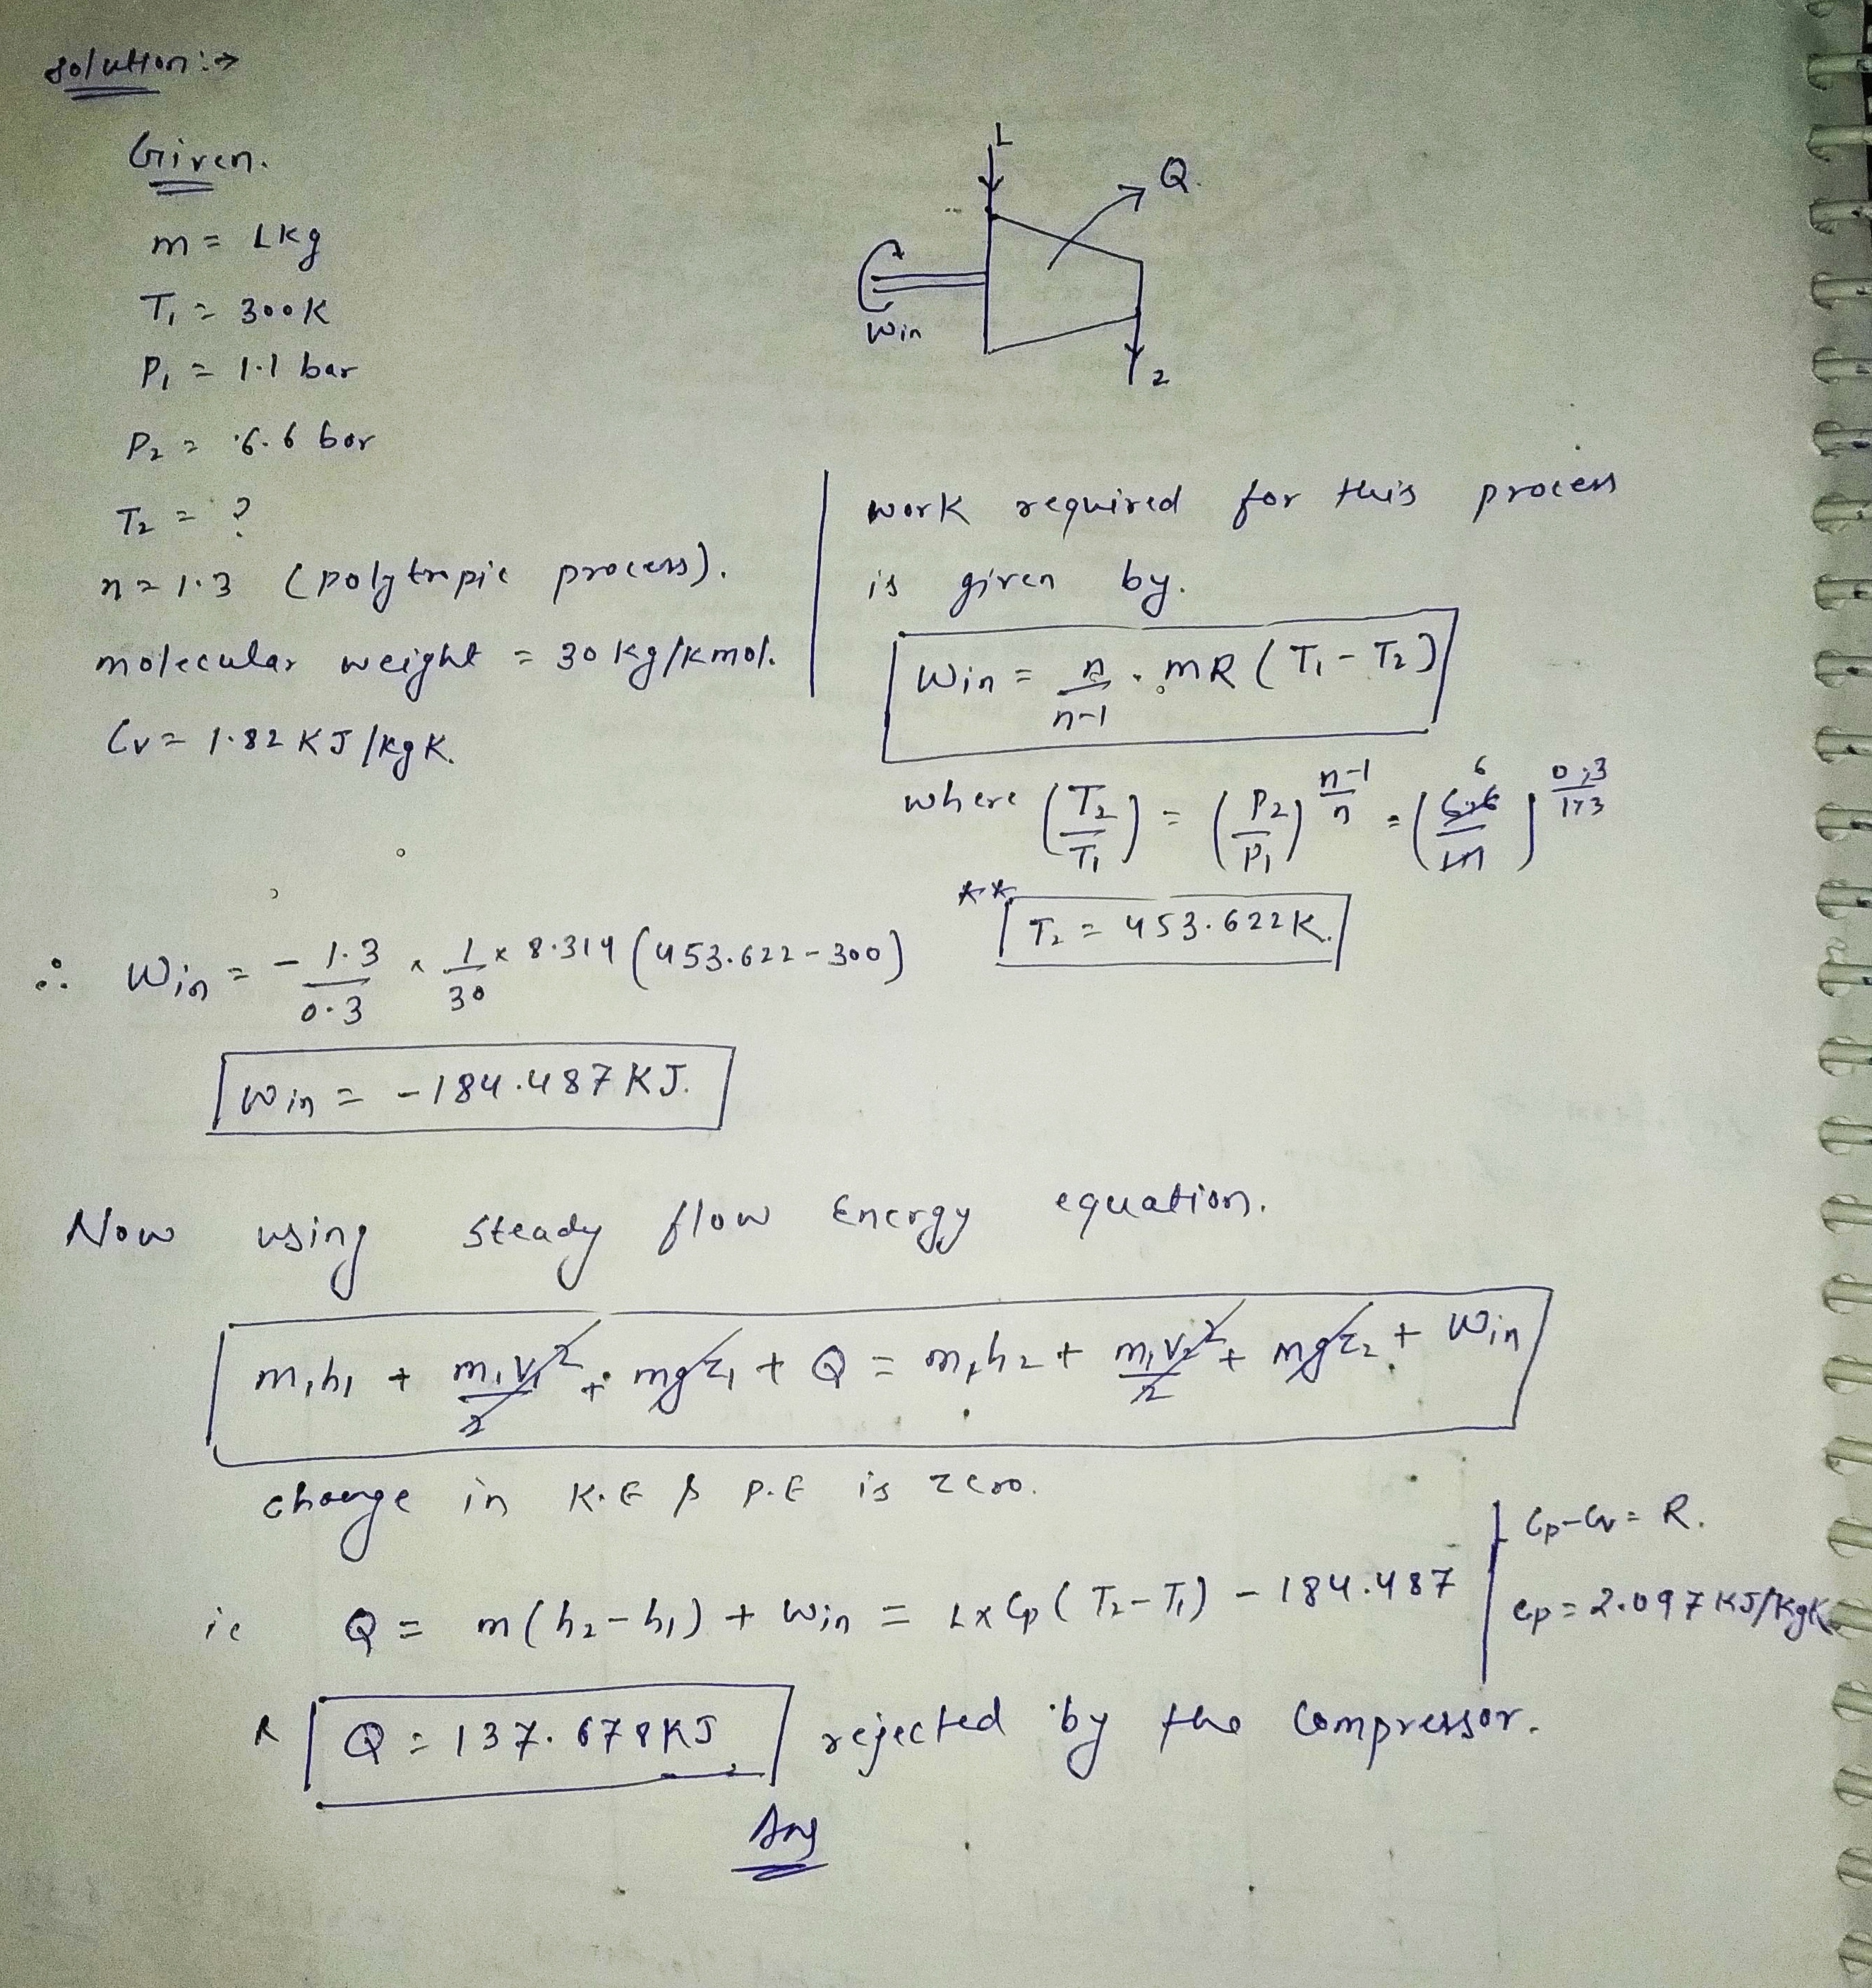 Solution :→
Given.
m = 1kg
T₁ = 300K
P₁ = 1.1 bar
P₂ = 6.6 bar
T₂ = ?
n = 1.3 (polytropic process).
molecular weight = 30 kg/kmol.
Cv = 1.82 KJ/kgK.
1
Q.
Win
2
work required for this process
is given by.
Win = n/(n-1) . mR (T₁ - T₂)
where (T₂/T₁) = (P₂/P₁)^((n-1)/n) = (6.6/1.1)^(0.3/1.3)
6
** T₂ = 453.622K.
∴ Win = - 1.3/0.3 × 1/30 × 8.314 (453.622 - 300)
Win = -184.487 KJ.
Now using steady flow Energy equation.
m₁h₁ + m₁v₁²/2 + mgz₁ + Q = m₁h₂ + m₁v₂²/2 + mgz₂ + Win
change in K.E & P.E is zero.
Cp - Cv = R.
Cp = 2.097 KJ/KgK
ie Q = m(h₂ - h₁) + Win = 1×Cp (T₂ - T₁) - 184.487
Q = 137.678KJ rejected by the compressor.
Ans